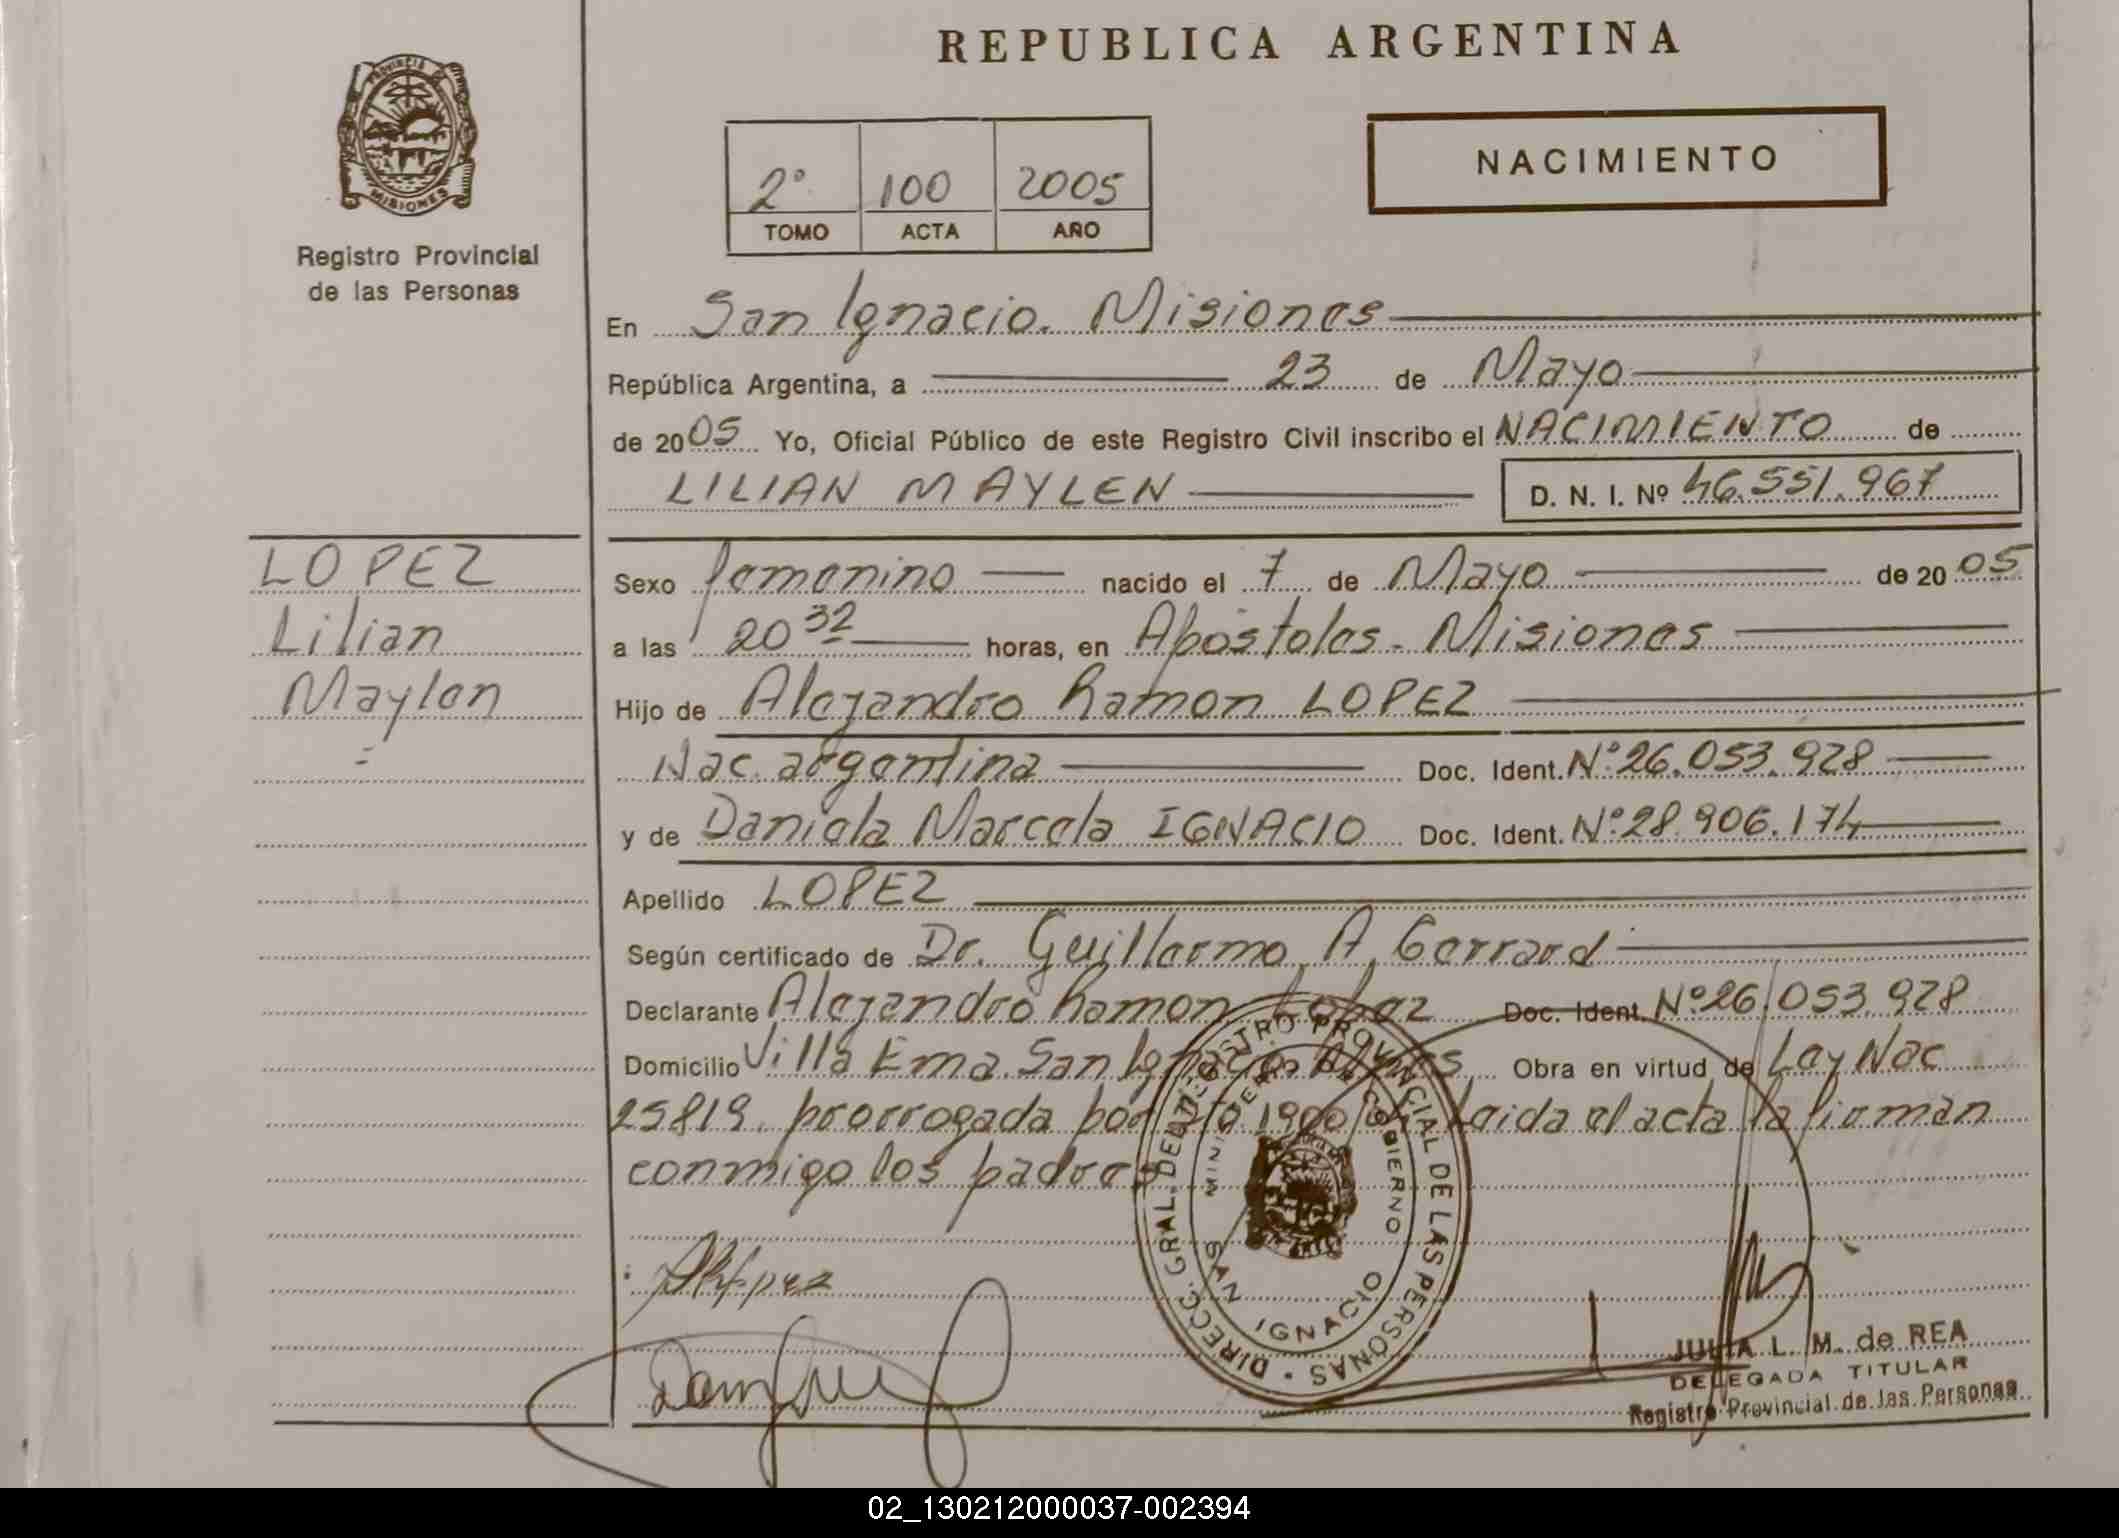 REPUBLICA ARGENTINA
PROVINCIA DE
MISIONES
Registro Provincial
de las Personas
2° 100 2005
TOMO ACTA AÑO
NACIMIENTO
En San Ignacio. Misiones
República Argentina, a 23 de Mayo
de 2005 Yo, Oficial Público de este Registro Civil inscribo el NACIMIENTO de
LILIAN MAYLEN D. N. I. Nº 46.551.967
LOPEZ
Lilian
Maylen
Sexo femenino nacido el 7 de Mayo de 2005
a las 20 32 horas, en Apóstoles - Misiones
Hijo de Alejandro Ramon LOPEZ
Nac. argentina Doc. Ident. Nº 26.053.928
y de Daniela Marcela IGNACIO Doc. Ident. Nº 28.906.174
Apellido LOPEZ
Según certificado de Dr. Guillermo A. Gerrard
Declarante Alejandro Ramon Lopez Doc. Ident. Nº 26.053.928
Domicilio Villa Ema. San Ignacio Obra en virtud de Ley Nac
25819. prorrogada por Leida el acta la firman
conmigo los padres
DIRECC. GRAL. DEL REGISTRO PROVINCIAL DE LAS PERSONAS
MINISTERIO DE GOBIERNO
SAN IGNACIO
JULIA L. M. de REA
DELEGADA TITULAR
Registro Provincial de las Personas
02_130212000037-002394